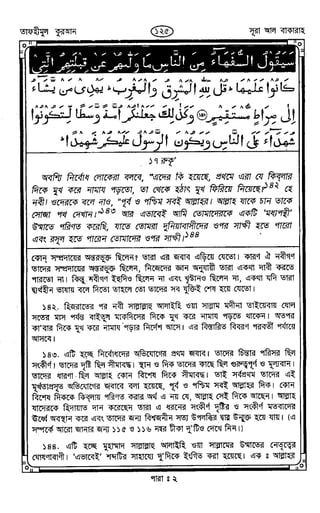 তাফহীমুল কুরআন
১২৫
সূরা আল বাকারাহ
سَيَقُولُ السُّفَهَاءُ مِنَ النَّاسِ مَا وَلّٰىهُمْ عَنْ قِبْلَتِهِمُ الَّتِي
كَانُوا عَلَيْهَا ۚ قُلْ لِّلّٰهِ الْمَشْرِقُ وَالْمَغْرِبُ ۖ يَهْدِي مَنْ يَّشَاءُ
إِلٰى صِرَاطٍ مُّسْتَقِيمٍ ۝ وَكَذٰلِكَ جَعَلْنٰكُمْ أُمَّةً وَّسَطًا لِّتَكُونُوا
شُهَدَاءَ عَلَى النَّاسِ وَيَكُونَ الرَّسُولُ عَلَيْكُمْ شَهِيدًا
১৭ রুকূ'
অবশ্যি নির্বোধ লোকেরা বলবে, "এদের কি হয়েছে, প্রথমে এরা যে কিব্‌লার
দিকে মুখ করে নামায পড়তো, তা থেকে হঠাৎ মুখ ফিরিয়ে নিয়েছে?১৪২ হে
নবী! ওদেরকে বলে দাও, "পূর্ব ও পশ্চিম সবই আল্লাহর। আল্লাহ যাকে চান তাকে
সোজা পথ দেখান।১৪৩ আর এভাবেই আমি তোমাদেরকে একটি 'মধ্যপন্থী'
উম্মাতে পরিণত করেছি, যাতে তোমরা দুনিয়াবাসীদের ওপর সাক্ষী হতে পারো
এবং রসূল হতে পারেন তোমাদের ওপর সাক্ষী।১৪৪
কোন্ সম্প্রদায়ের অন্তরভুক্ত ছিলেন? তারা এর জবাব এড়িয়ে যেতো। কারণ ঐ নবীগণ
তাদের সম্প্রদায়ের অন্তরভুক্ত ছিলেন, নিজেদের জ্ঞান অনুযায়ী তারা একথা দাবী করতে
পারতো না। কিন্তু নবীগণ ইহুদিও ছিলেন না এবং খৃষ্টানও ছিলেন না, একথা যদি তারা
দ্ব্যর্থহীন ভাষায় বলে দিতো তাহলে তো তাদের সব যুক্তিই শেষ হয়ে যেতো।
১৪২. হিজরাতের পর নবী সাল্লাল্লাহু আলাইহি ওয়া সাল্লাম মদীনা তাইয়েবায় ষোল
সতের মাস পর্যন্ত বাইতুল মাকদিসের দিকে মুখ করে নামায পড়তে থাকেন। অতপর
কা'বার দিকে মুখ করে নামায পড়ার নির্দেশ আসে। এর বিস্তারিত বিবরণ পরবর্তী পর্যায়ে
আসবে।
১৪৩. এটি হচ্ছে নির্বোধদের অভিযোগের প্রথম জবাব। তাদের চিন্তার পরিসর ছিল
সংকীর্ণ। তাদের দৃষ্টি ছিল সীমাবদ্ধ। স্থান ও দিক তাদের কাছে ছিল গুরুত্বপূর্ণ ও মূল্যবান।
তাদের ধারণা ছিল আল্লাহ কোন বিশেষ দিকে সীমাবদ্ধ। তাই সর্বপ্রথম তাদের এই
মূর্খতাপ্রসূত অভিযোগের জবাবে বলা হয়েছে, পূর্ব ও পশ্চিম সবই আল্লাহর দিক। কোন
বিশেষ দিককে কিব্‌লায় পরিণত করার অর্থ এ নয় যে, আল্লাহ সেই দিকে আছেন। আল্লাহ
যাদেরকে হিদায়াত দান করেছেন তারা এ ধরনের সংকীর্ণ দৃষ্টির ও সংকীর্ণ মতবাদের
ঊর্ধ্বে অবস্থান করে এবং তাদের জন্য বিশ্বজনীন সত্য উপলব্ধির দ্বার উন্মুক্ত হয়ে যায়। (এ
সম্পর্কে আরো জানার জন্য ১১৫ ও ১১৬ নম্বর টীকা দু'টিও দেখে নিন।)
১৪৪. এটি হচ্ছে মুহাম্মাদ সাল্লাল্লাহু আলাইহি ওয়া সাল্লামের উম্মাতের নেতৃত্বের
ঘোষণাবাণী। 'এভাবেই' শব্দটির সাহায্যে দু'দিকে ইংগিত করা হয়েছে। এক ঃ আল্লাহর
পারা ঃ ২